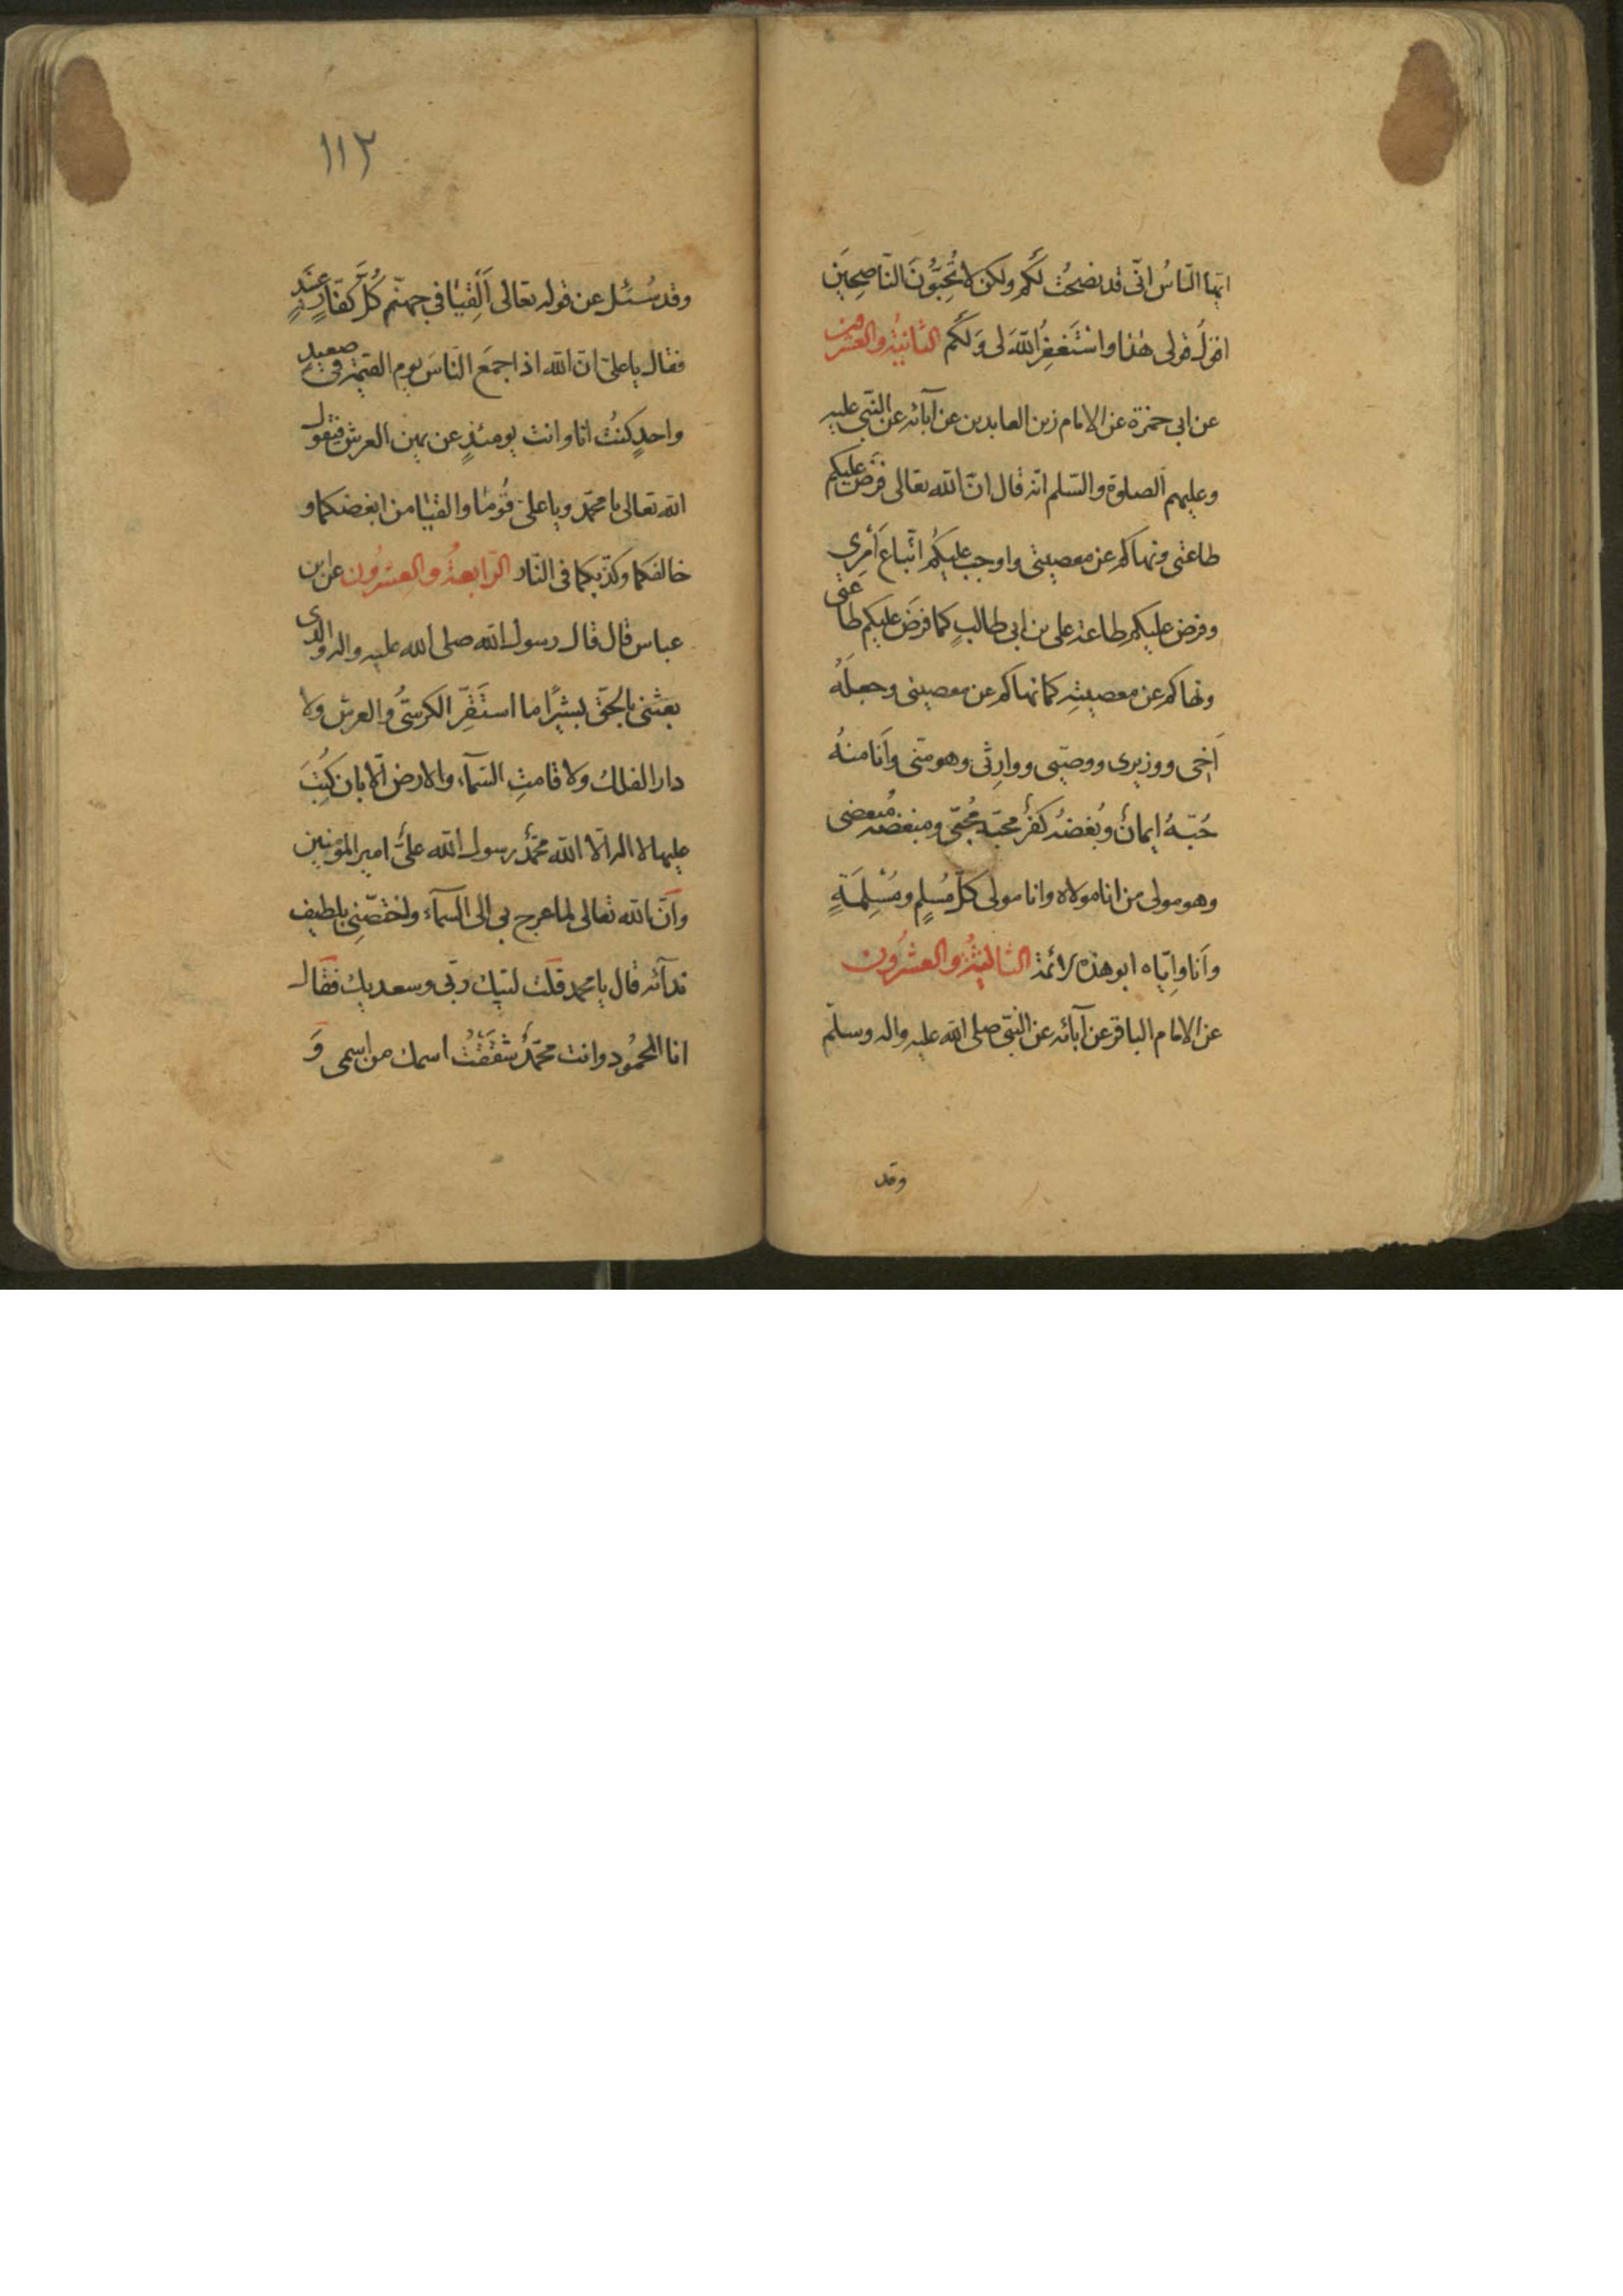 ايّها النّاسُ انّى قد نصحتُ لَكُم ولكن لا تُحِبُّونَ النّاصِحِينَ
اقولُ قولى هٰذا واسْتَغفِرُ اللّٰهَ لى وَلَكُم الثّانيةُ والعشرون
عن ابى حمزة عن الامام زين العابدين عن آبائه عن النّبى عليه
وعليهم الصلوة والسّلم انّه قال انّ اللّٰه تعالى فرَضَ عليكم
طاعتى ونهاكم عن معصيتى واوجب عليكُم اتّباعَ أَمرِى
وفرض عليكم طاعة على بن ابى طالبٍ كما فرَضَ عليكم طاعتى
ونهاكم عن معصيتهِ كما نهاكم عن معصيتى وجعلَهُ
اَخِى ووزيرى ووصيّى ووارِثى وهو منّى وأَنا منهُ
حُبّهُ ايمانٌ وبُغضهُ كفرٌ محبّه مُحبّى ومبغضه مُبغضى
وهو مولى من انا مولاه وانا مولى كلّ مُسلِمٍ ومُسْلِمَةٍ
وأَنا وايّاه ابو هذه الائمة الثالثةُ والعشرُون
عن الامام الباقر عن آبائه عن النبّى صلى اللّٰه عليه واله وسلّم
وقد
١١٢
وقد سُئل عن قوله تعالى أَلْقِيٰا فى جهنّم كُلَّ كفّارٍ عنيدٍ
فقال يا علىّ انّ اللّٰه اذا جمَعَ النّاسَ يوم القيٰمة فى صعيدٍ
واحدٍ كنتُ انا وانت يومئذٍ عن يمين العرش فيقول
اللّٰه تعالى يا محمّد ويا على قُومٰا والقيٰا من ابغضكما و
خالفكما وكذّبكما فى النّار الرّابعةُ والعشرُون عن ابن
عباس قال قال رسول اللّٰه صلى اللّٰه عليه واله والّذى
بعثنى بالحقّ بشيرًا ما استَقَرّ الكرسىُّ والعرش ولا
دار الفلك ولا قامتِ السّمآء والارض الّا بان كُتِبَ
عليها لا اله الّا اللّٰه محمّدٌ رسول اللّٰه علىٌّ امير المؤمنين
وأَنّ اللّٰه تعالى لما عرج بى الى السمآء واختصّنِى بلطيف
ندآئه قال يا محمد قلت لبّيك ربّى وسعديك فقال
انا المحمُود وانت محمّدٌ شقَقْتُ اسمك من اسمى وَ